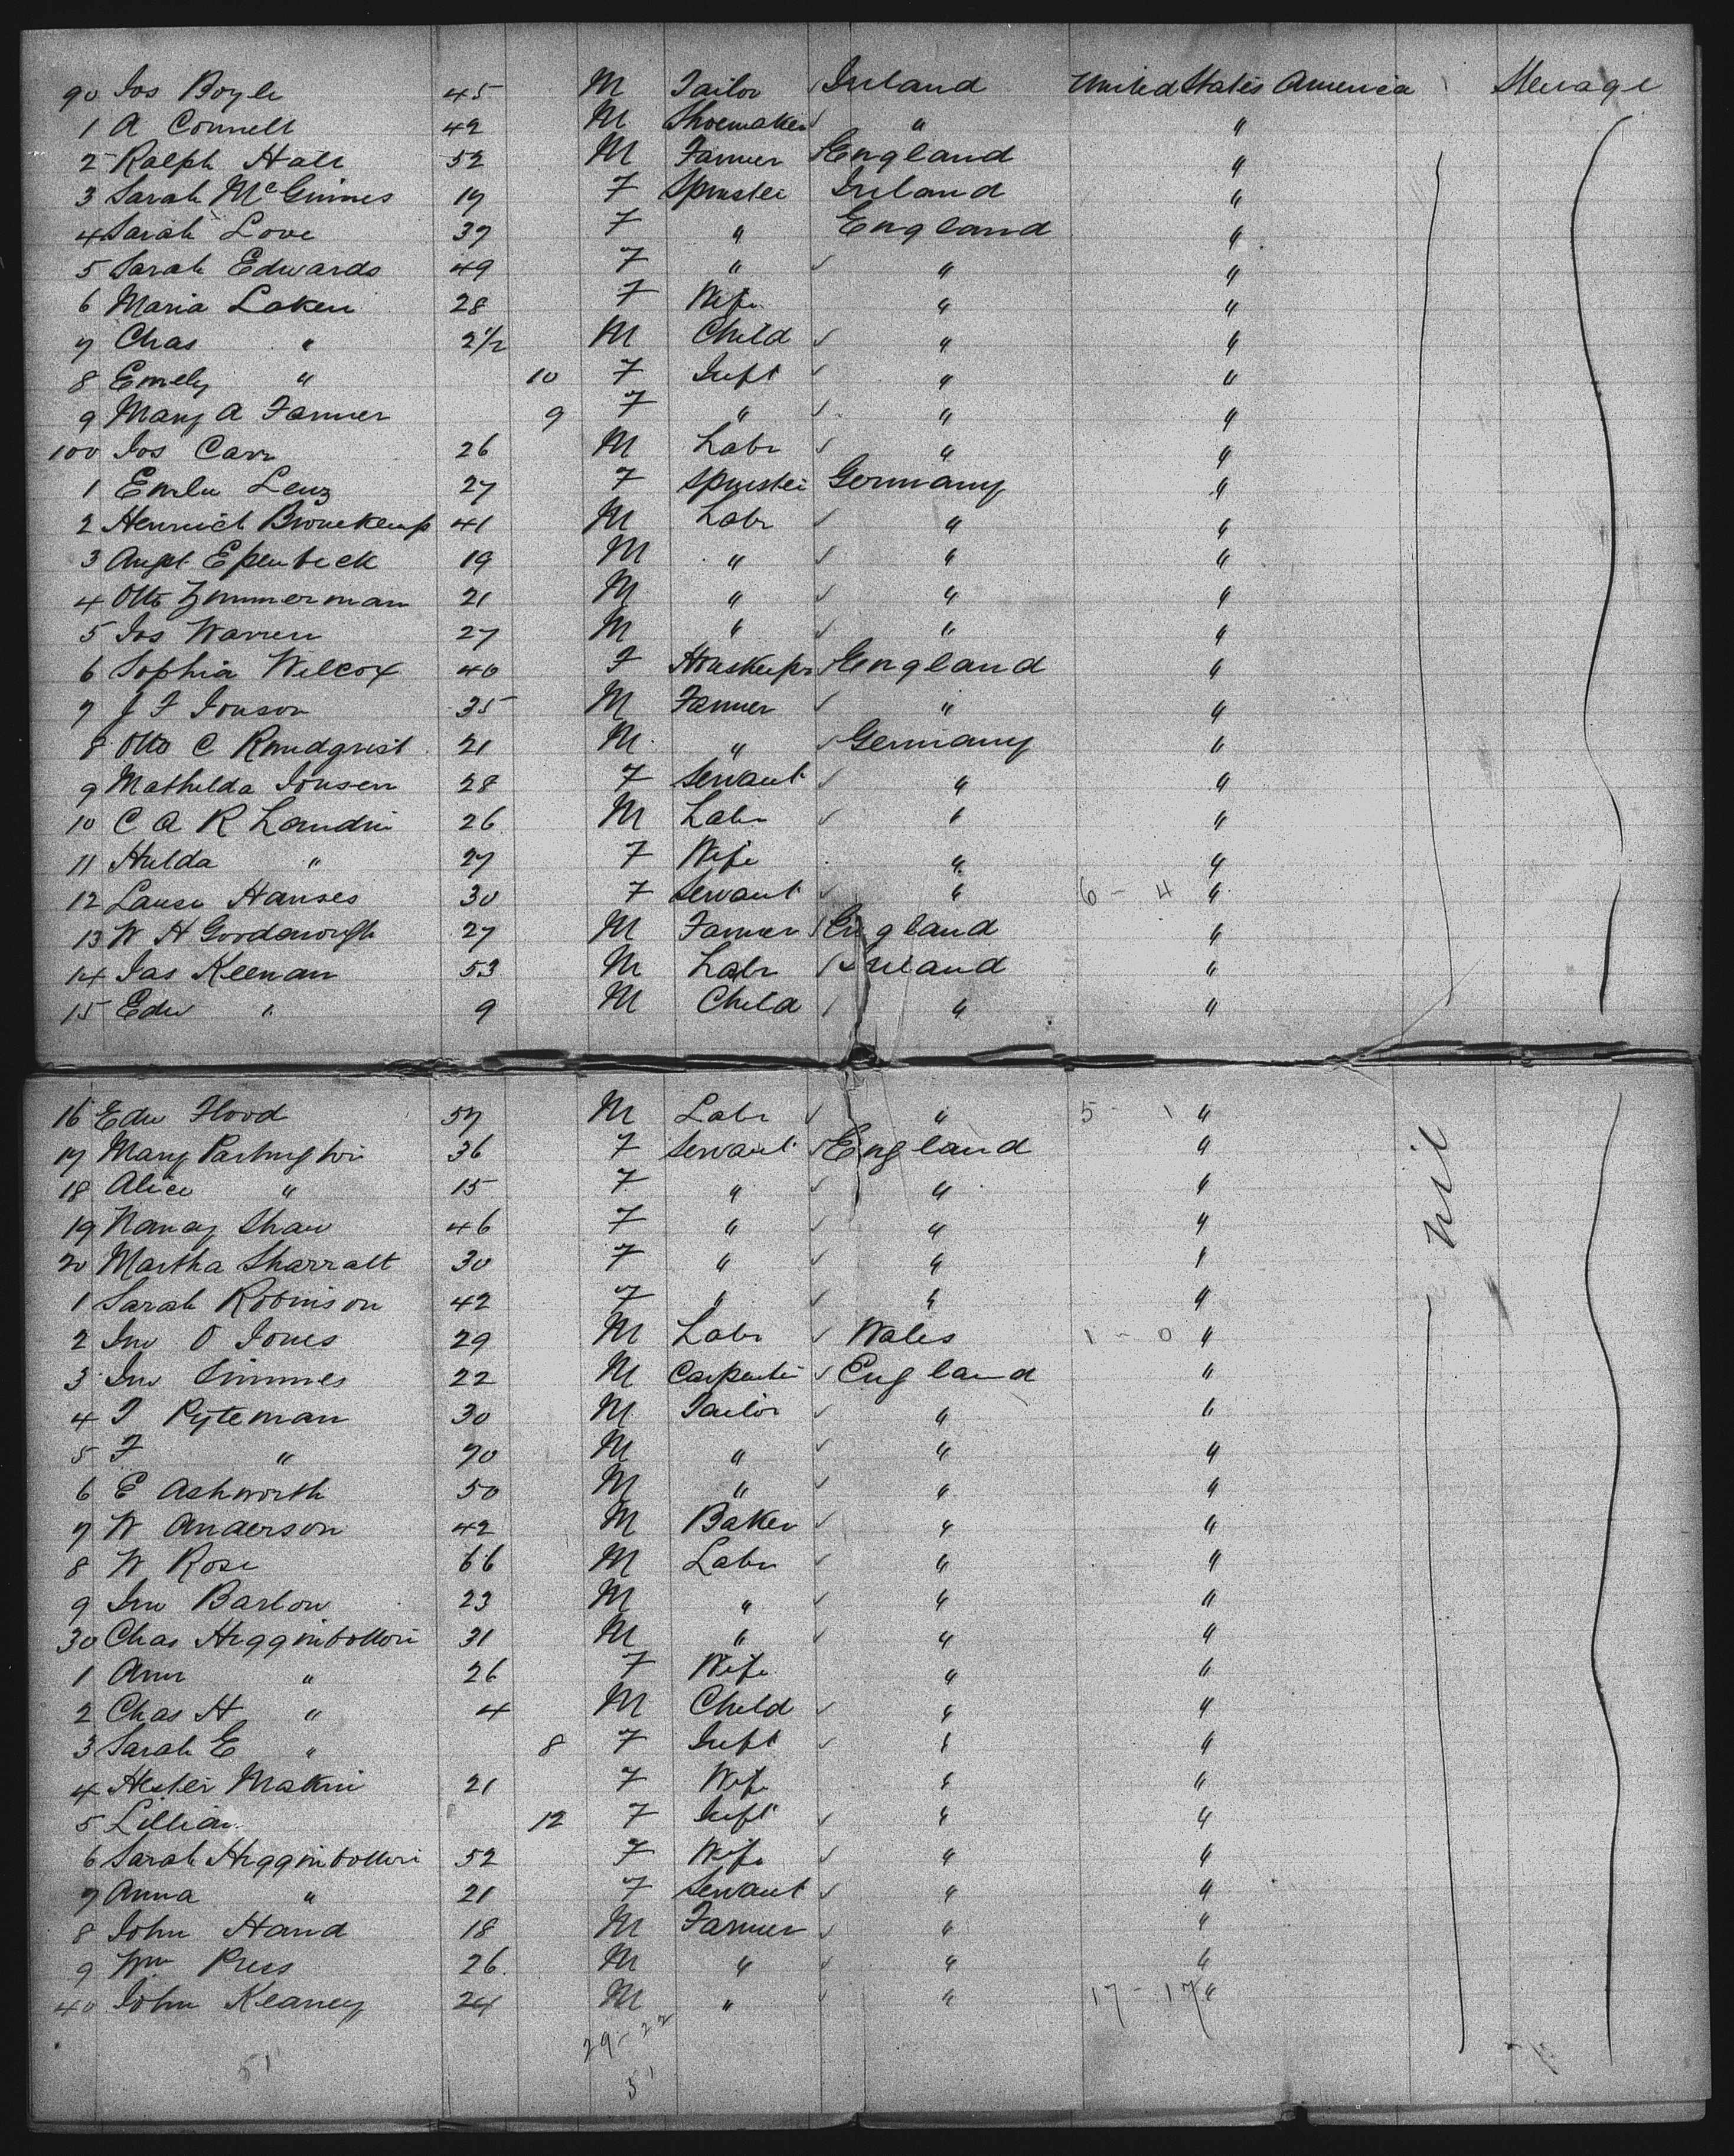 90 Jos Boyle 45 M Tailor Ireland United States America Steerage
1 A Connell 42 M Shoemaker " "
2 Ralph Hall 52 M Farmer England "
3 Sarah McGinnes 19 F Spinster Ireland "
4 Sarah Love 37 F " England "
5 Sarah Edwards 49 F " " "
6 Maria Laken 28 F Wife " "
7 Chas " 2½ M Child " "
8 Emely " 10 F Inft " "
9 Mary A Farmer 9 F " " "
100 Jos Carr 26 M Labr " "
1 Emelu Lenz 27 F Spinster Germany "
2 Henrich 41 M Labr " "
3 Augst Epenbeck 19 M " " "
4 Otto Zimmerman 21 M " " "
5 Jos Warren 27 M " " "
6 Sophia Wilcox 40 F Houskeepr England "
7 J F Jonson 35 M Farmer " "
8 Otto C Rundqvist 21 M " Germany "
9 Mathilda Jonsen 28 F Servant " "
10 C A R Landin 26 M Labr " "
11 Hulda " 27 F Wife " "
12 Hanses 30 F Servant " 6 - 4 "
13 W H Goodenough 27 M Farmer England "
14 Jas Keenan 53 M Labr Ireland "
15 Edw " 9 M Child " "
16 Edw Flood 57 M Labr " 5 - 1 "
17 Mary Partington 36 F Servant England "
18 Alice " 15 F " " " nil
19 Nancy Shaw 46 F " " "
20 Martha Sharratt 30 F " " "
1 Sarah Robinson 42 F " " "
2 Jno O Jones 29 M Labr Wales 1 - 0 "
3 Jno Simmes 22 M Carpenter England "
4 T Pyteman 30 M Tailor " "
5 F " 70 M " " "
6 E Ashworth 50 M " " "
7 W Anderson 42 M Baker " "
8 W Rose 66 M Labr " "
9 Jno Barlow 23 M " " "
30 Chas Higginbottom 31 M " " "
1 Ann " 26 F Wife " "
2 Chas H " 4 M Child " "
3 Sarah E " 8 F Inft " "
4 Hester Makin 21 F Wife " "
5 Lillian 12 F Inft " "
6 Sarah Higginbottom 52 F Wife " "
7 Anna " 21 F Servant " "
8 John Hand 18 M Farmer " "
9 Wm Press 26 M " " "
40 John Keaney 24 M " " 17 - 17 "
29 - 22
51 51